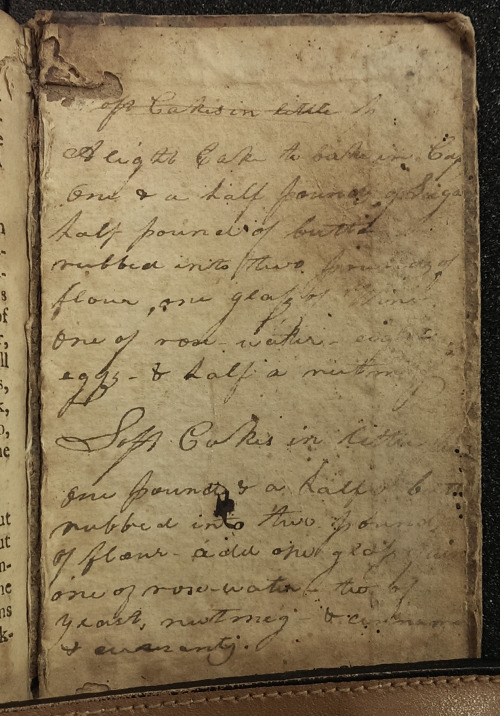 oft Cakes in little
A light Cake to bake in Cup
one & a half pound of Suga
half pound of butte
rubbed into two pounds of
flour, one glass of Wine
one of rose-water- eight
eggs- & half a nutmeg
Soft Cakes in little
one pound & a half of butt
rubbed into two pound
of flour- add one glass wine
one of rose-water- two of
yeast, nutmeg- & cinnamo
& currants.
s
of
ll
s,
k,
o,
he
ut
ut
n-
he
ns
k-